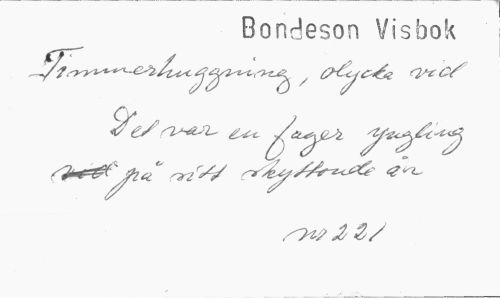 Bondeson Visbok
Timmerhuggning, olycka vid
Det var en fager yngling
på sitt skyttonde år
nr 221